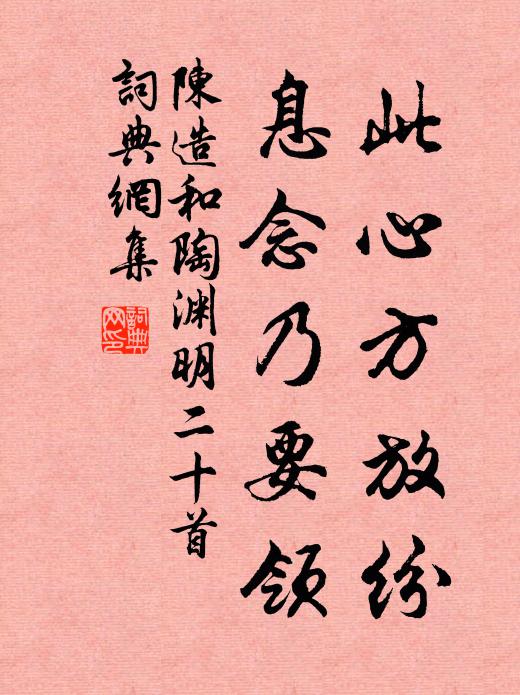 此心方放纷
息念乃要領
陳造和陶渊明二十首
詞典網集
詞典网印